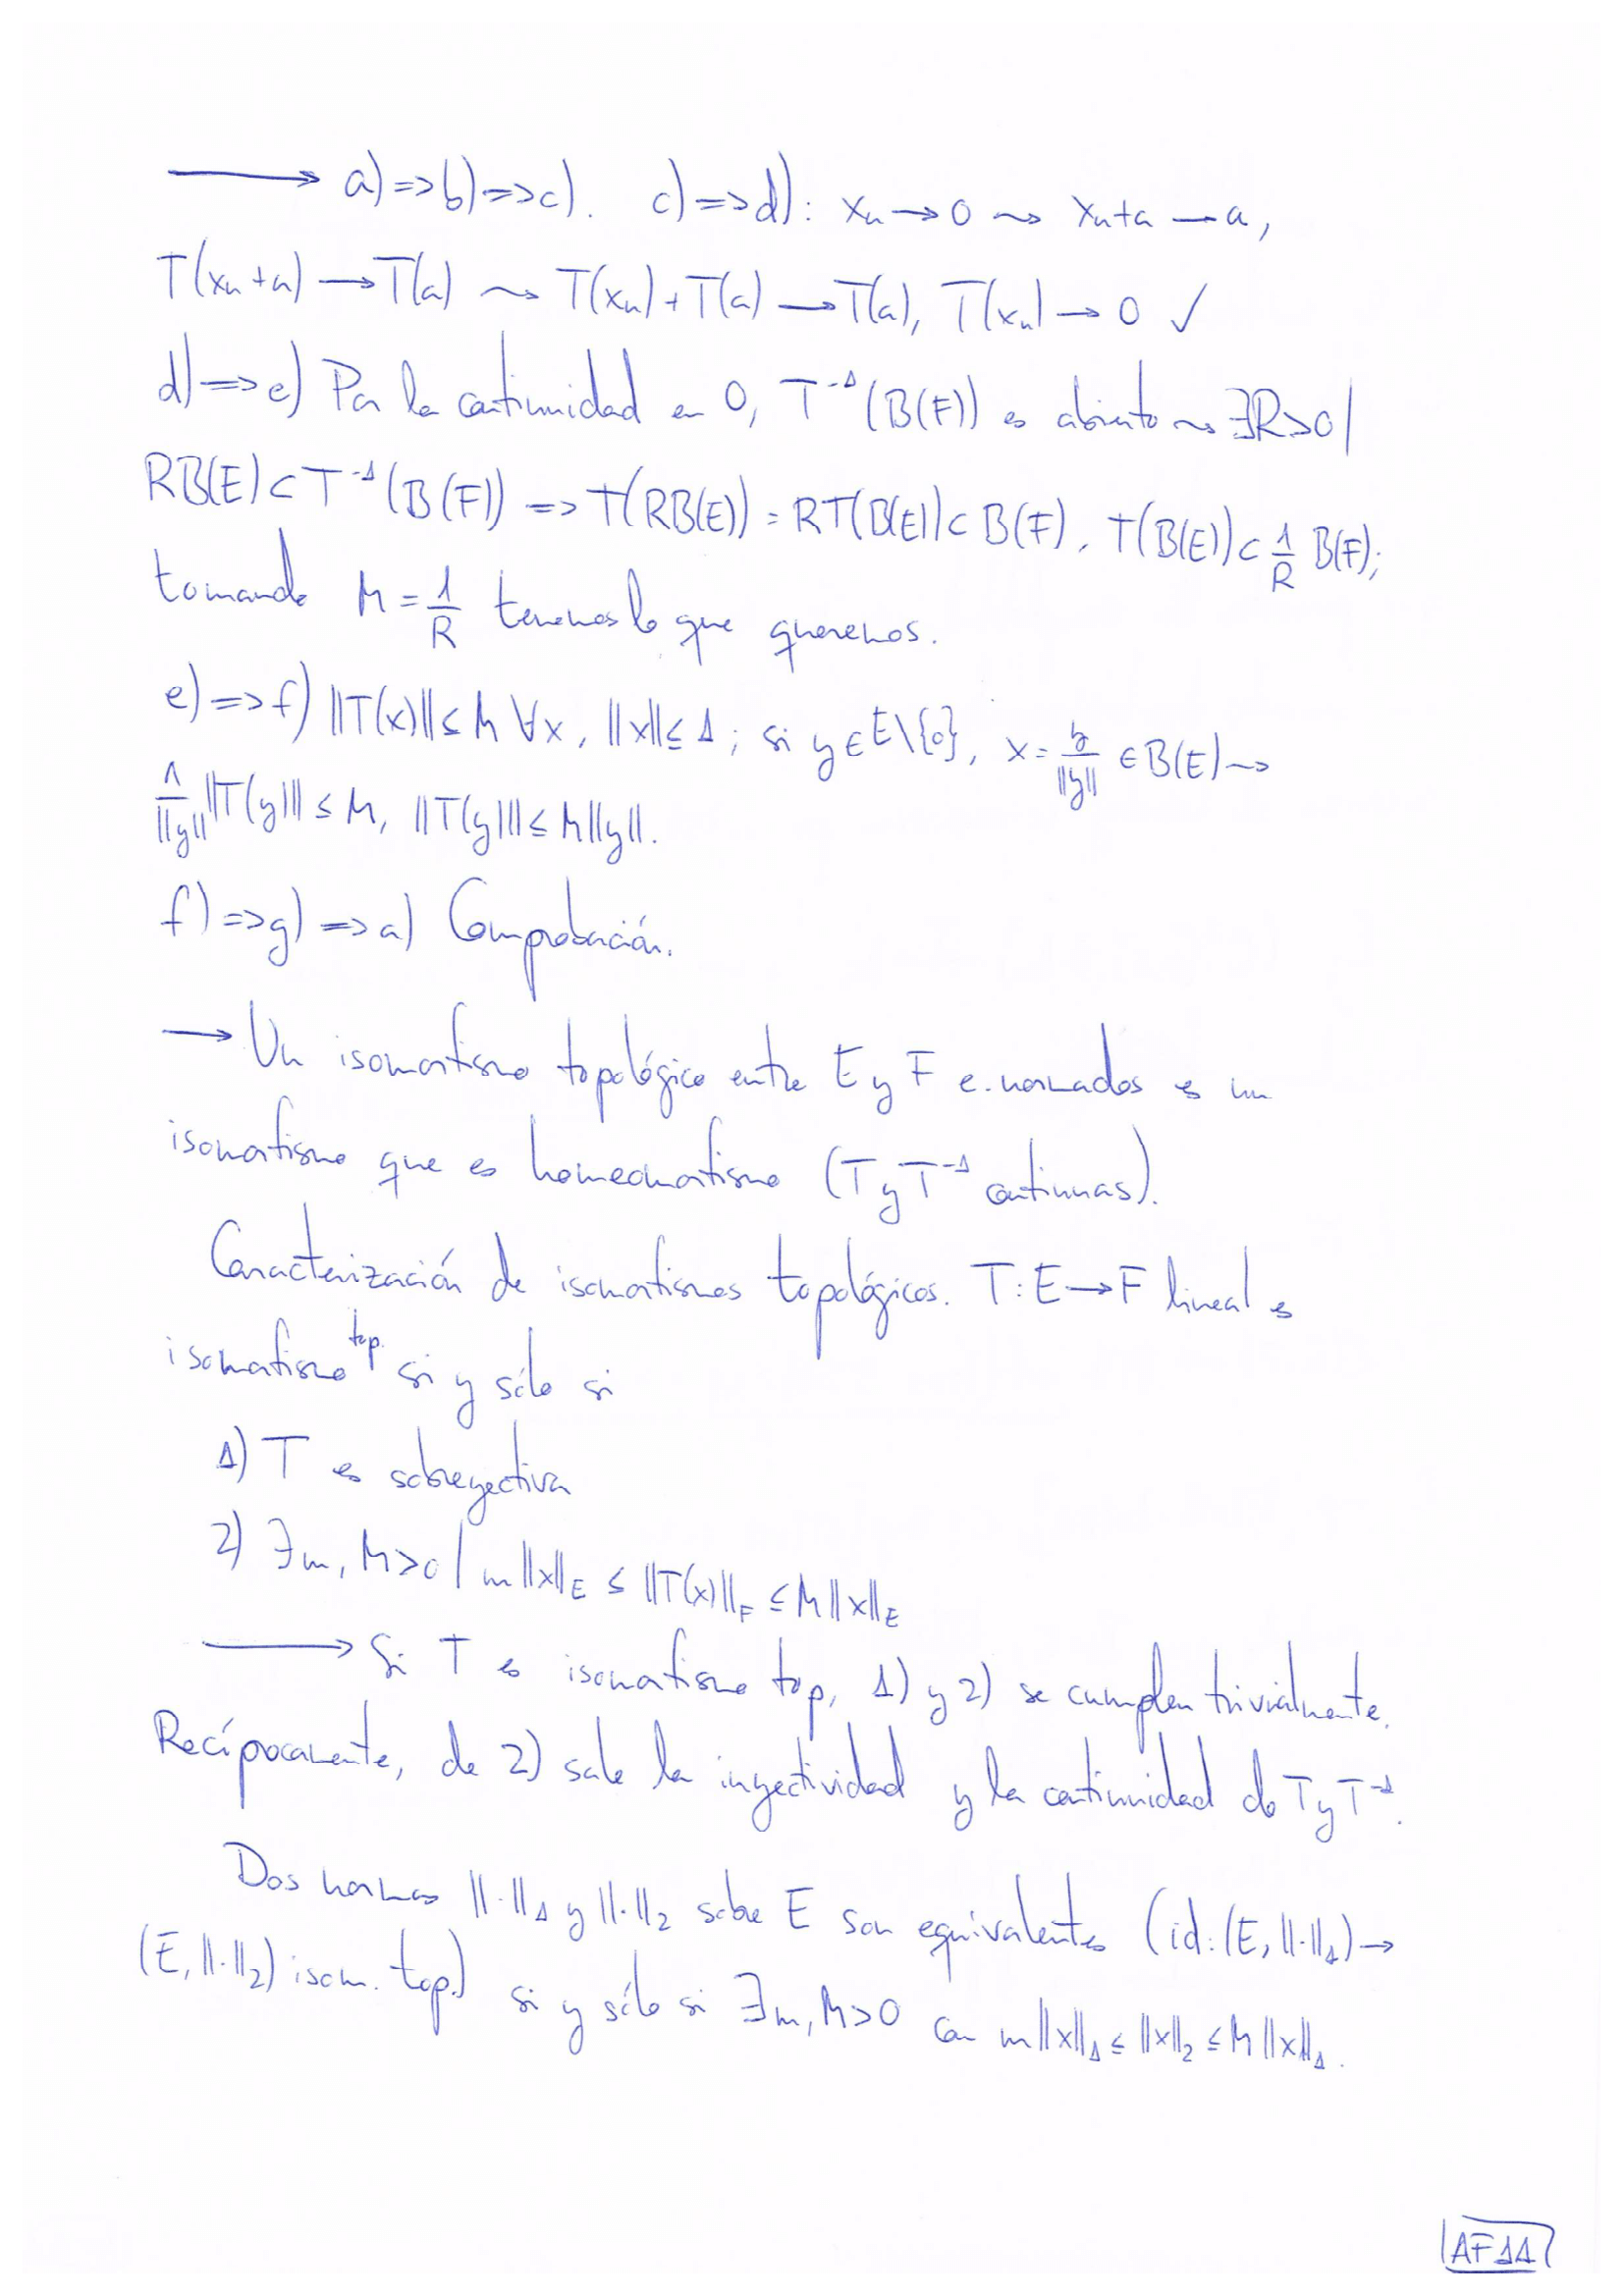 ⟶ a) => b) => c). c) => d): xₙ → 0 ⇝ xₙ + a — a,
T(xₙ + a) → T(a) ⇝ T(xₙ) + T(a) → T(a), T(xₙ) → 0 ✓
d) => e) Por la continuidad en 0, T⁻¹(B(F)) es abierto ⇝ ∃R>0 |
RB(E) ⊂ T⁻¹(B(F)) => T(RB(E)) = RT(B(E)) ⊂ B(F), T(B(E)) ⊂ 1/R B(F);
tomando M = 1/R tenemos lo que queremos.
e) => f) ||T(x)|| ≤ M ∀x, ||x|| ≤ 1; si y ∈ E\{0}, x = y/||y|| ∈ B(E) ⇝
1/||y|| ||T(y)|| ≤ M, ||T(y)|| ≤ M||y||.
f) => g) => a) Comprobación.
→ Un isomorfismo topológico entre E y F e. normados es un
isomorfismo que es homeomorfismo (T y T⁻¹ continuas).
Caracterización de isomorfismos topológicos. T: E → F lineal es
isomorfismo top. si y sólo si
1) T es sobreyectiva
2) ∃m, M>0 | m||x||_E ≤ ||T(x)||_F ≤ M||x||_E
⟶ Si T es isomorfismo top, 1) y 2) se cumplen trivialmente.
Recíprocamente, de 2) sale la inyectividad y la continuidad de T y T⁻¹.
Dos normas ||·||₁ y ||·||₂ sobre E son equivalentes (id: (E, ||·||₁) →
(E, ||·||₂) isom. top.) si y sólo si ∃m, M>0 con m||x||₁ ≤ ||x||₂ ≤ M||x||₁.
AF11